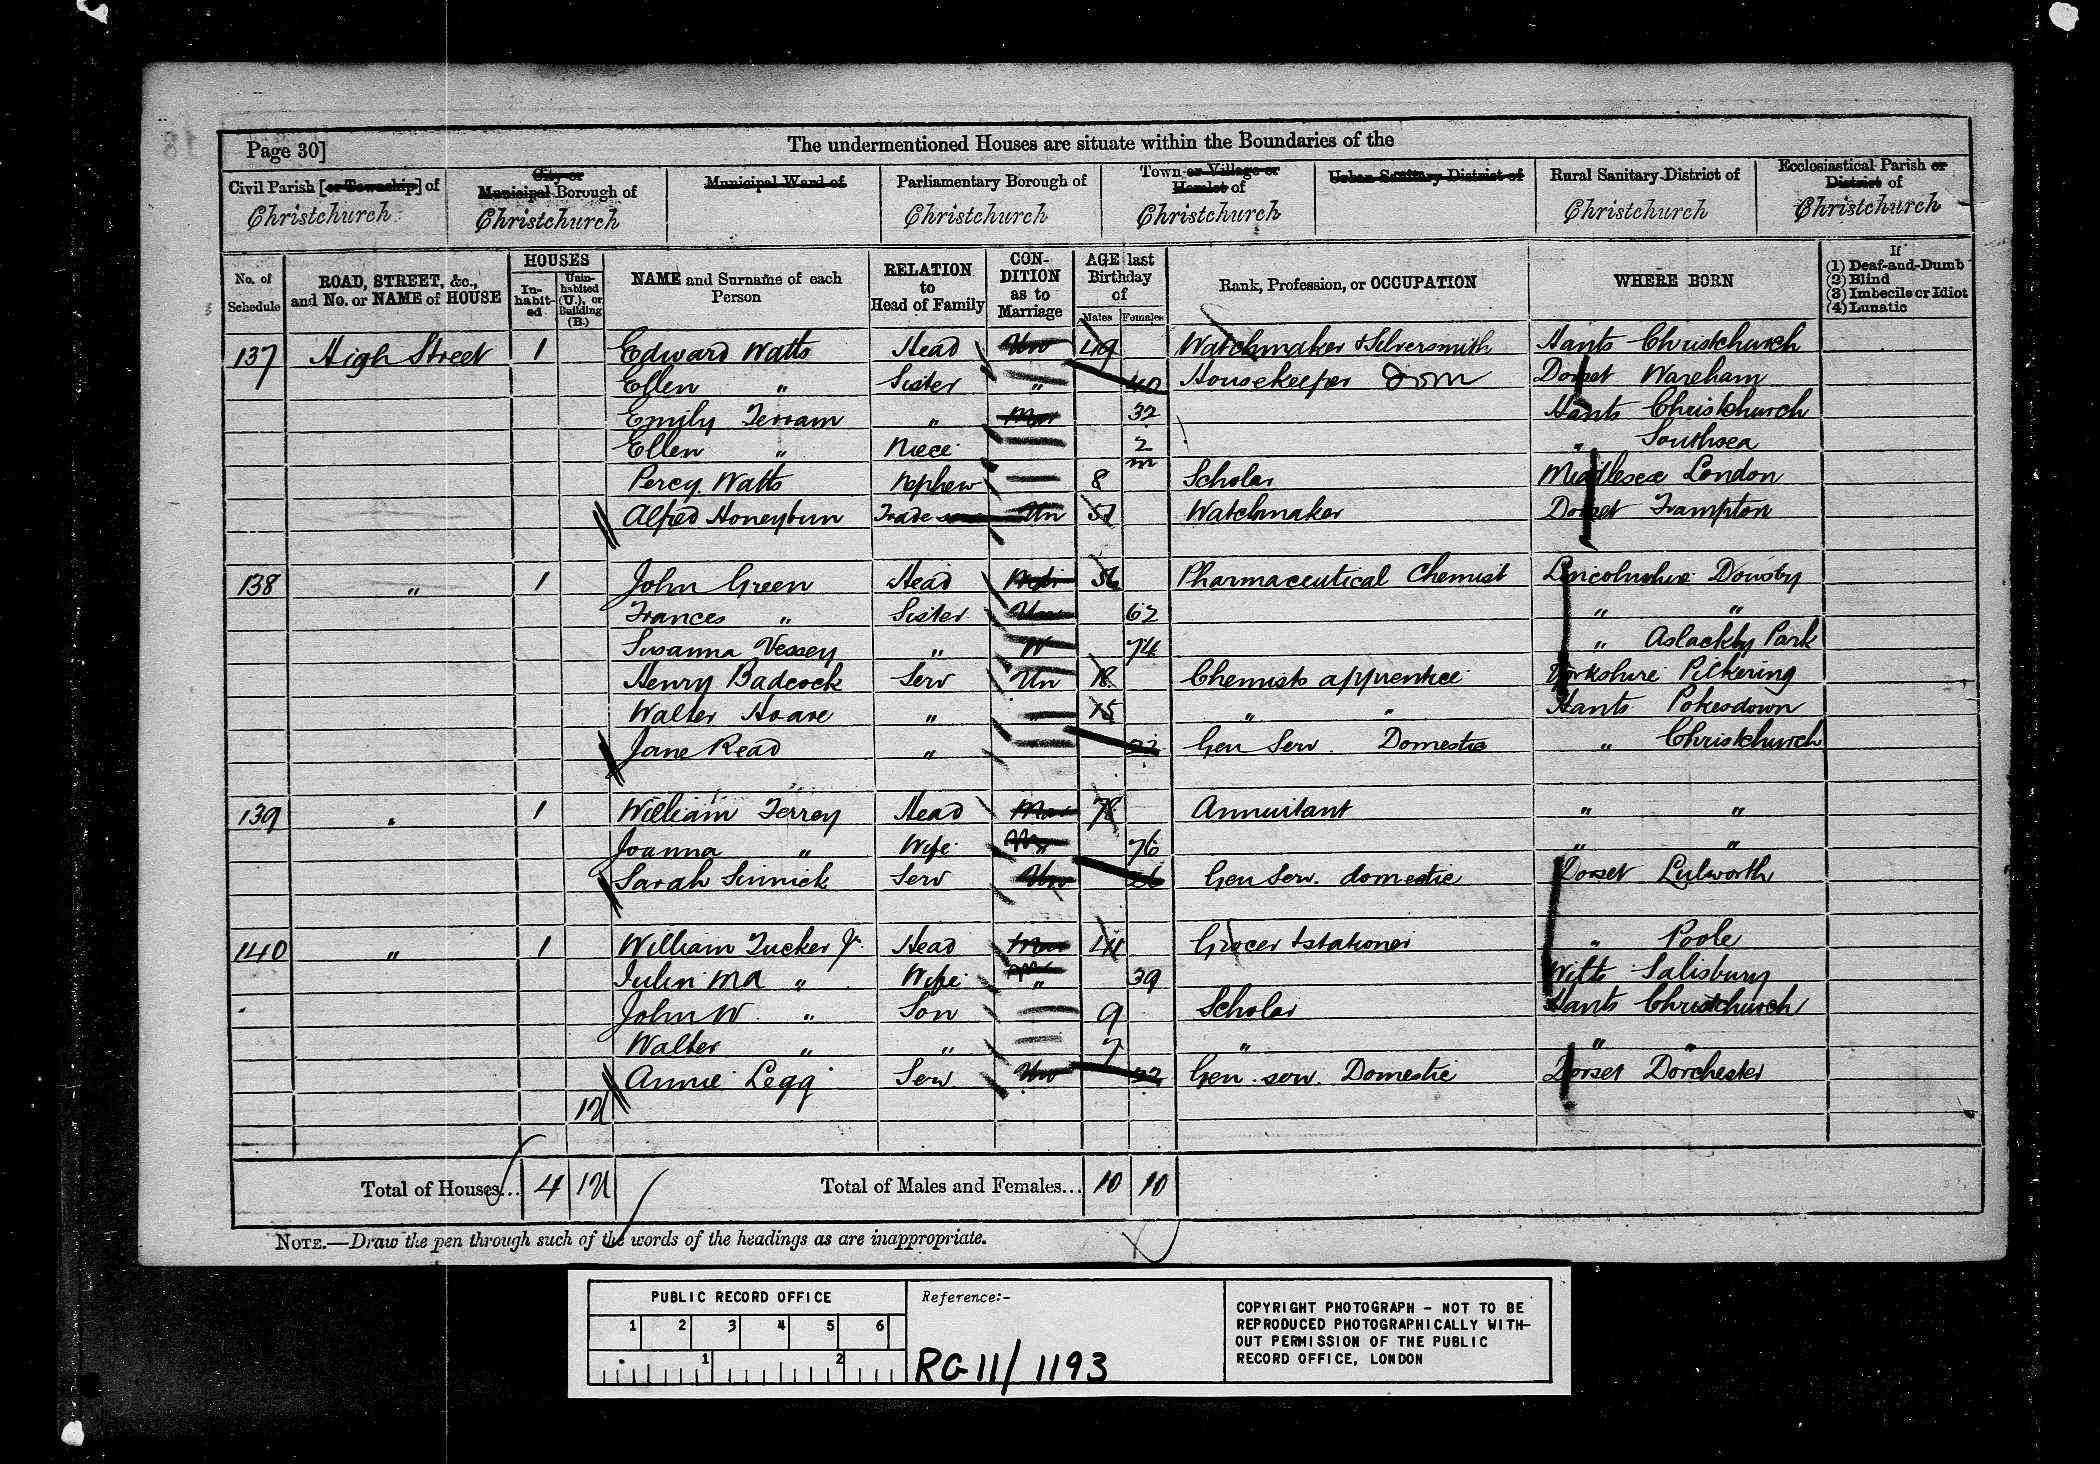 Page 30]
The undermentioned Houses are situate within the Boundaries of the
Civil Parish [or Township] of Christchurch
City or Municipal Borough of Christchurch
Municipal Ward of
Parliamentary Borough of Christchurch
Town or Village or Hamlet of Christchurch
Urban Sanitary District of
Rural Sanitary District of Christchurch
Ecclesiastical Parish or District of Christchurch
No. of Schedule
ROAD, STREET, &c., and No. or NAME of HOUSE
HOUSES
In-habit-ed
Unin-habited (U.), or Building (B.)
NAME and Surname of each Person
RELATION to Head of Family
CON-DITION as to Marriage
AGE last Birthday of
Males Females
Rank, Profession, or OCCUPATION
WHERE BORN
If
(1) Deaf-and-Dumb
(2) Blind
(3) Imbecile or Idiot
(4) Lunatic
137 High Street 1 Edward Watts Head Un 49 Watchmaker & Silversmith Hants Christchurch
Ellen " Sister " 40 Housekeeper Dom Dorset Wareham
Emily Terram " Mar 32 Hants Christchurch
Ellen " Niece 2 m " Southsea
Percy Watts Nephew 8 Scholar Middlesex London
Alfred Honeybun Trade Un 51 Watchmaker Dorset Frampton
138 " 1 John Green Head 56 Pharmaceutical Chemist Lincolnshire Dowsby
Frances " Sister Un 62 " "
Susanna Vessey " W 74 " Aslackby Park
Henry Badcock Serv Un 18 Chemists apprentice Yorkshire Pickering
Walter Hoare " 15 " " Hants Pokesdown
Jane Read " 22 Gen Serv. Domestic " Christchurch
139 " 1 William Terrey Head Mar 78 Annuitant " "
Joanna " Wife " 76 " "
Sarah Sinnick Serv Un Gen Serv. domestic Dorset Lulworth
140 " 1 William Tucker Jr. Head Mar 44 Grocer & stationer " Poole
Julia M A " Wife " 39 Wilts Salisbury
John W " Son 9 Scholar Hants Christchurch
Walter " " 7 " " "
Annie Legg Serv Un 22 Gen. serv. Domestic Dorset Dorchester
Total of Houses... 4
Total of Males and Females... 10 10
NOTE.—Draw the pen through such of the words of the headings as are inappropriate.
PUBLIC RECORD OFFICE
1 2 3 4 5 6
1 2
Reference:-
RG 11 / 1193
COPYRIGHT PHOTOGRAPH - NOT TO BE
REPRODUCED PHOTOGRAPHICALLY WITH-
OUT PERMISSION OF THE PUBLIC
RECORD OFFICE, LONDON